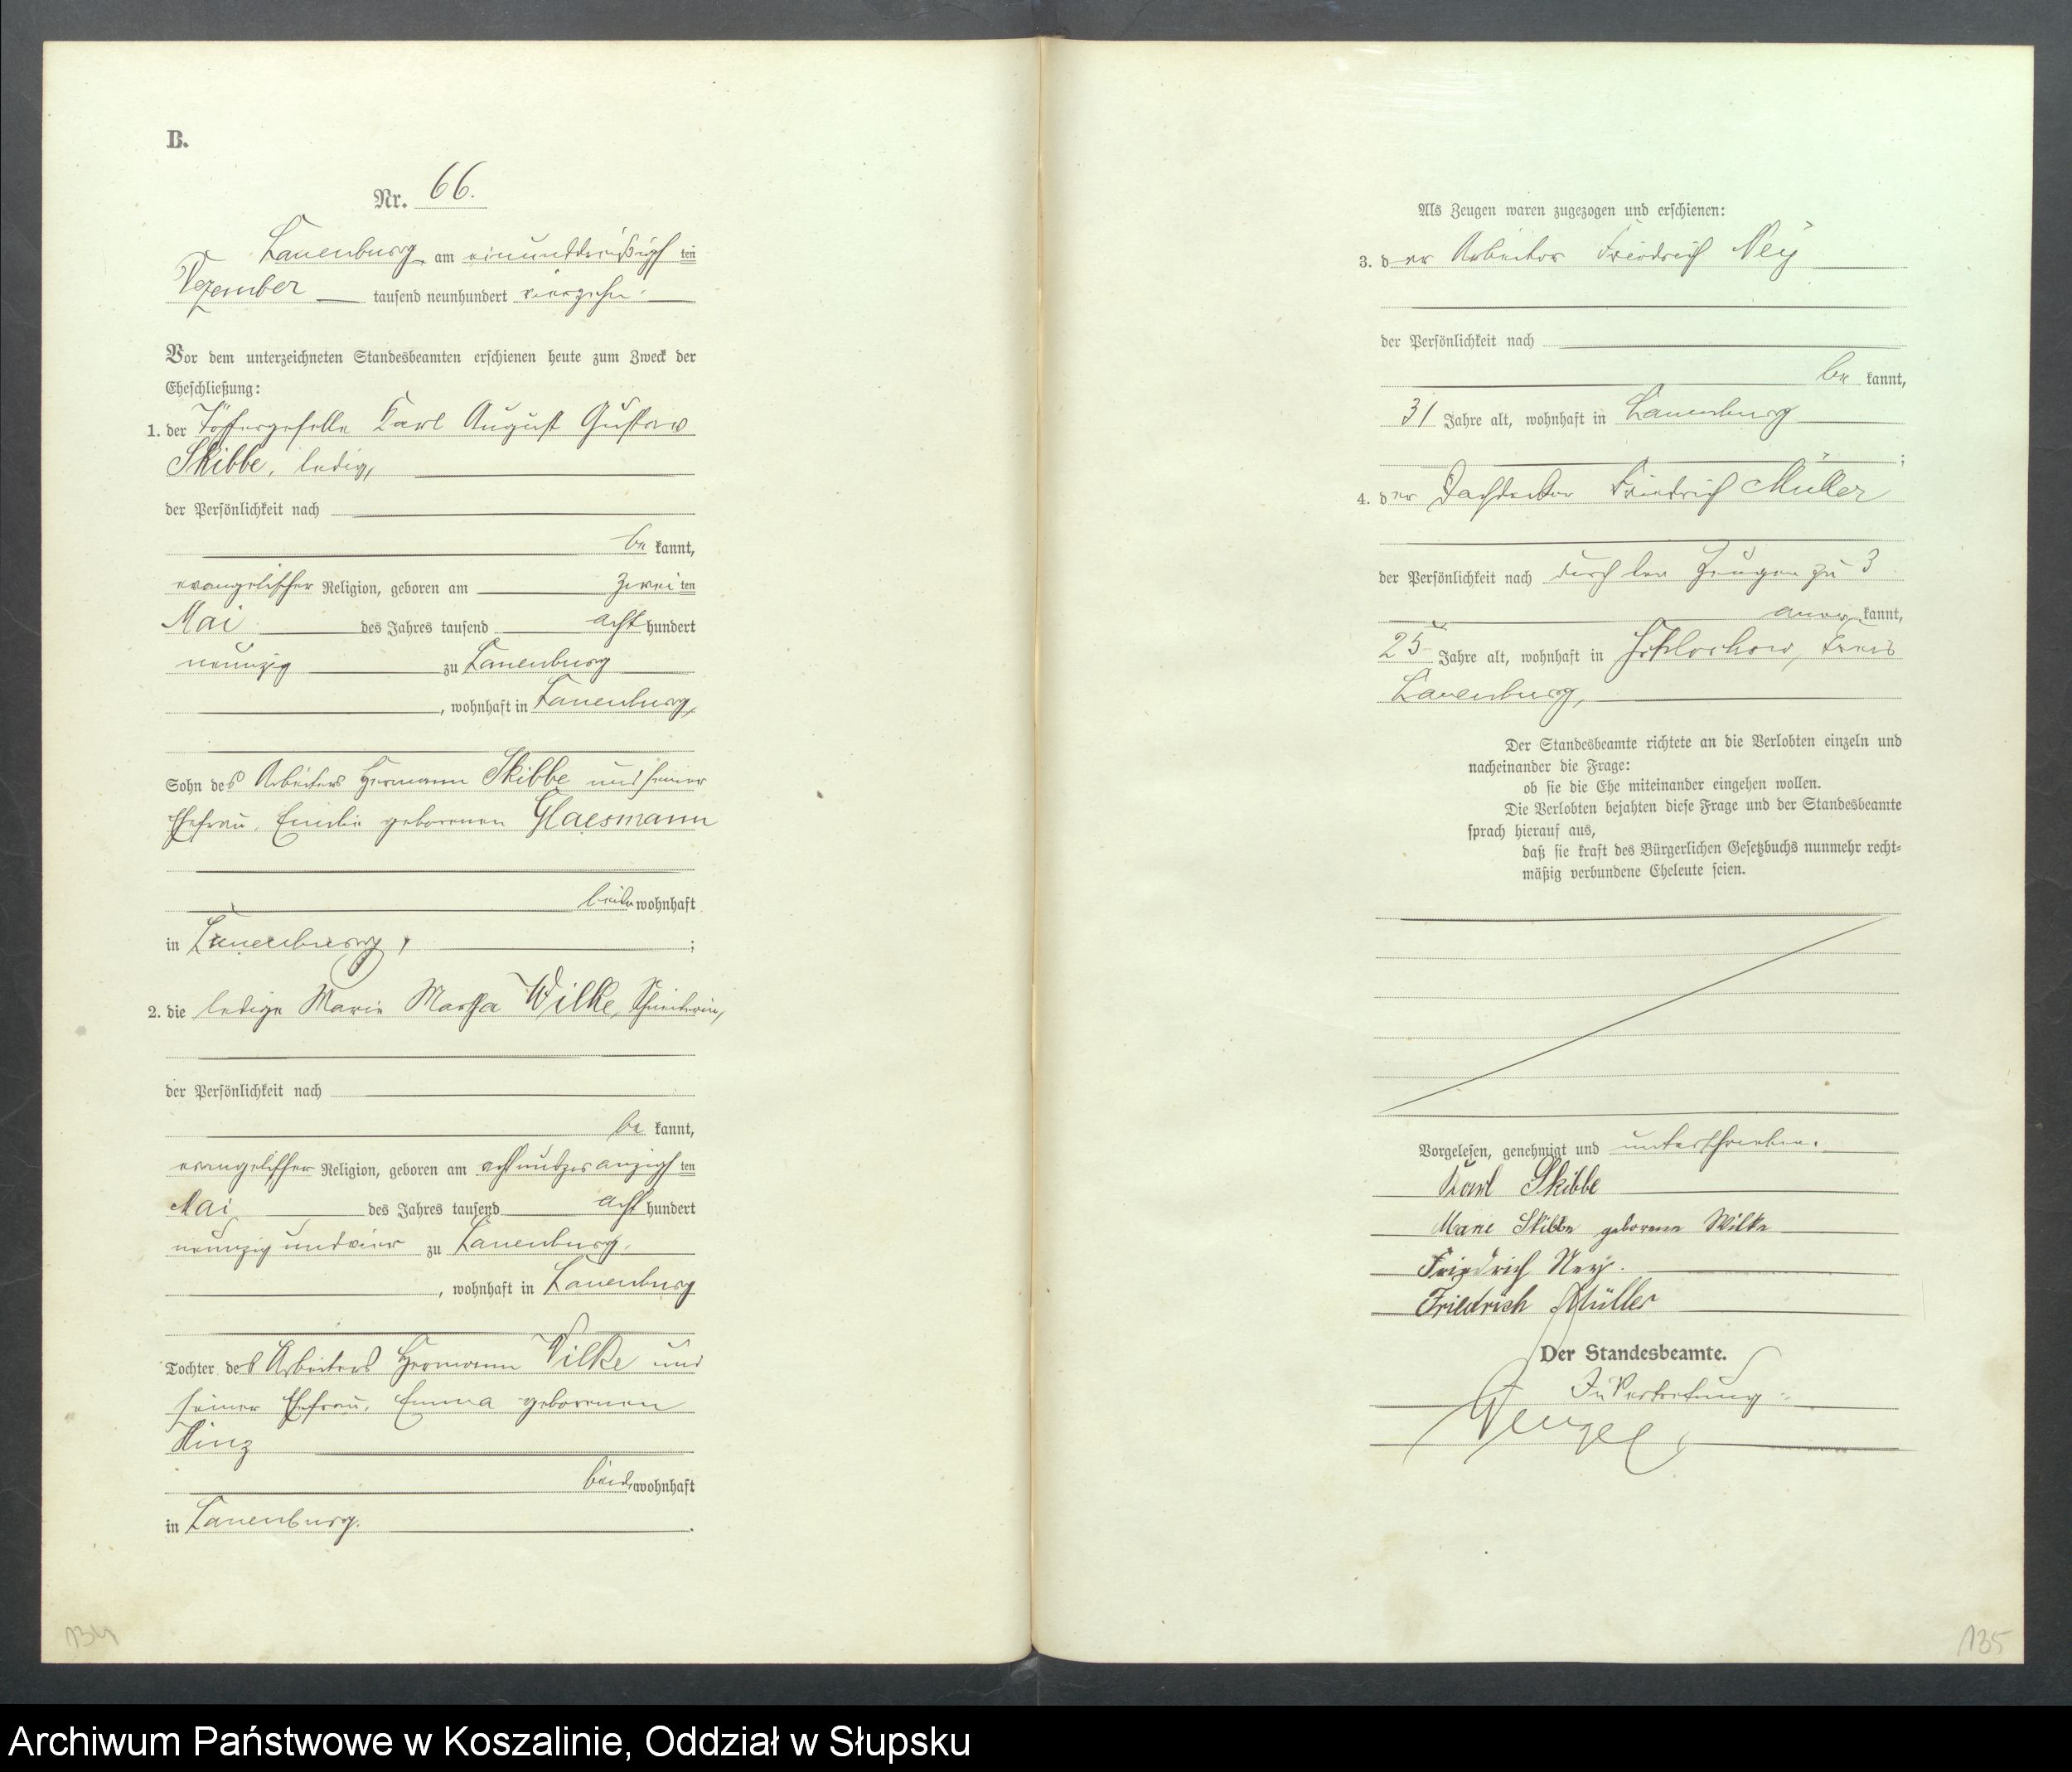 B.
Nr. 66.
Lauenburg am einunddreißigsten
Dezember tausend neunhundert vierzehn.
Vor dem unterzeichneten Standesbeamten erschienen heute zum Zweck der
Eheschließung:
1. der Töpfergeselle Karl August Gustav
Skibbe, ledig,
der Persönlichkeit nach
be kannt,
evangelischer Religion, geboren am zweiten
Mai des Jahres tausend acht hundert
neunzig zu Lauenburg
, wohnhaft in Lauenburg,
Sohn des Arbeiters Hermann Skibbe und seiner
Ehefrau, Emilie geborenen Glaesmann
beide wohnhaft
in Lauenburg, ;
2. die ledige Marie Martha Wilke, Schneiderin,
der Persönlichkeit nach
be kannt,
evangelischer Religion, geboren am achtundzwanzigsten
Mai des Jahres tausend acht hundert
neunzig und vier zu Lauenburg,
, wohnhaft in Lauenburg
Tochter des Arbeiters Hermann Wilke und
seiner Ehefrau, Emma geborenen
Hinz
beide wohnhaft
in Lauenburg.
134
Als Zeugen waren zugezogen und erschienen:
3. der Arbeiter Friedrich Ney
der Persönlichkeit nach
be kannt,
31 Jahre alt, wohnhaft in Lauenburg
;
4. der Dachdecker Friedrich Müller
der Persönlichkeit nach durch den Zeugen zu 3
aner kannt,
25 Jahre alt, wohnhaft in Kreis
Lauenburg,
Der Standesbeamte richtete an die Verlobten einzeln und
nacheinander die Frage:
ob sie die Ehe miteinander eingehen wollen.
Die Verlobten bejahten diese Frage und der Standesbeamte
sprach hierauf aus,
daß sie kraft des Bürgerlichen Gesetzbuchs nunmehr recht-
mäßig verbundene Eheleute seien.
Vorgelesen, genehmigt und unterschrieben.
Karl Skibbe
Marie Skibbe geborene Wilke
Friedrich Ney.
Friedrich Müller
Der Standesbeamte.
In Vertretung:
135
Archiwum Państwowe w Koszalinie, Oddział w Słupsku